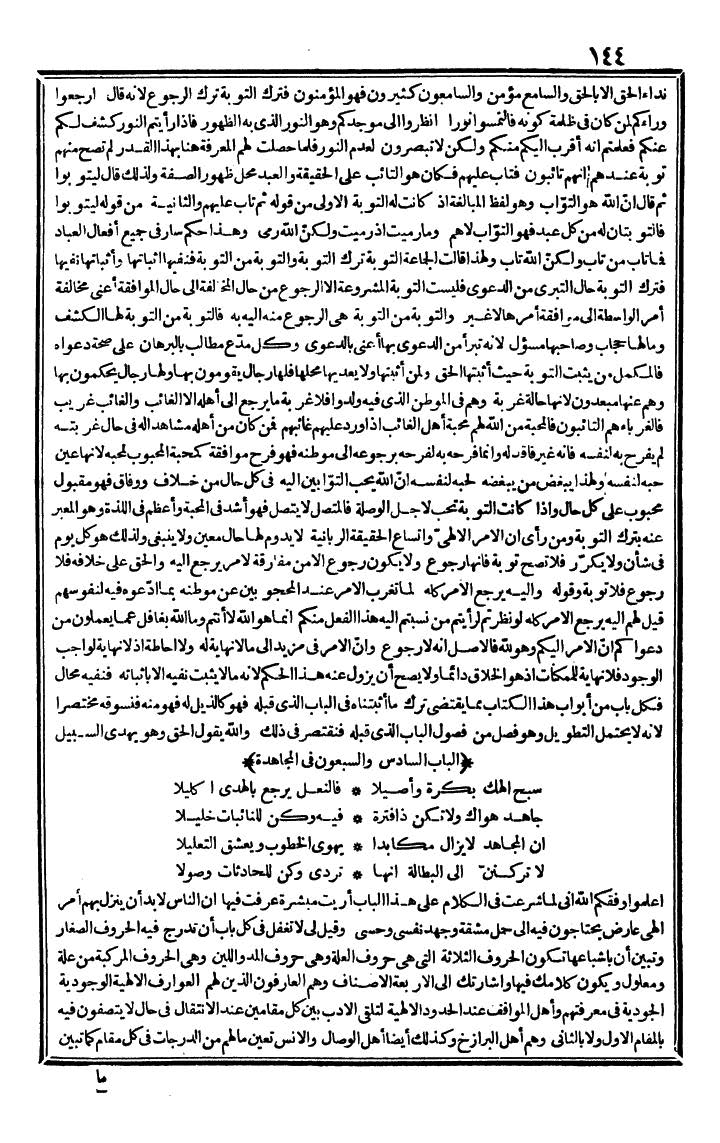 ١٤٤
نداء الحق الا بالحق والسامع مؤمن والسامعون كثيرون فهو المؤمنون فترك التوبة ترك الرجوع لانه قال ارجعوا
وراءكم لمن كان فى ظلمة كونه فالتمسوا نورا انظروا الى موجدكم وهو النور الذى به الظهور فاذا رأيتم النور كشف لكم
عنكم فعلمتم انه أقرب اليكم منكم ولكن لا تبصرون لعدم النور فلما حصلت لهم المعرفة هنا بهذا القدر لم تصح منهم
توبة عندهم انهم تائبون فتاب عليهم فكان هو التائب على الحقيقة والعبد محل ظهور الصفة ولذلك قال ليتوبوا
ثم قال انّ الله هو التوّاب وهو لفظ المبالغة اذ كانت له التوبة الاولى من قوله ثم تاب عليهم والثانية من قوله ليتوبوا
فالتوبتان له من كل عبد فهو التوّاب لاهم وما رميت اذ رميت ولكنّ الله رمى وهذا حكم سار فى جميع أفعال العباد
فما تاب من تاب ولكنّ الله تاب ولهذا قالت الجماعة التوبة ترك التوبة والتوبة من التوبة فنفيها اثباتها وأثباتها نفيها
فترك التوبة حال التبرى من الدعوى فليست التوبة المشروعة الا الرجوع من حال المخالفة الى حال الموافقة أعنى مخالفة
أمر الواسطة الى موافقة أمرها لا غير والتوبة من التوبة هى الرجوع منه اليه به فالتوبة من التوبة لها الكشف
وما لها حجاب وصاحبها مسؤل لانه تبرأ من الدعوى بها أعنى بالدعوى وكل مدّع مطالب بالبرهان على صحة دعواه
فالمكمل من يثبت التوبة حيث أثبتها الحق ولمن أثبتها ولا يعديها محلها فلها رجال يقومون بها ولها رجال يحكمون بها
وهم عنها مبعدون لانها حالة غربة وهم فى الموطن الذى فيه ولدوا فلا غربة ما يرجع الى أهله الا الغائب والغائب غريب
فالغرباء هم التائبون فالمحبة من الله لهم محبة أهل الغائب اذا ورد عليهم غائبهم فمن كان من أهله مشاهدا له فى حال غربته
لم يفرح به لنفسه فانه غير فاقد له وانما فرحه به لفرحه برجوعه الى موطنه فهو فرح موافقة كمحبة المحبوب لمحبه لانها عين
حبه لنفسه ولهذا يبغض من يبغضه لحبه لنفسه انّ الله يحب التوّابين اليه فى كل حال من خلاف ووفاق فهو مقبول
محبوب على كل حال واذا كانت التوبة تحب لاجل الوصلة فالمتصل لا يتصل فهو أشد فى المحبة وأعظم فى اللذة وهو المعبر
عنه بترك التوبة ومن رأى ان الامر الالهىّ واتساع الحقيقة الربانية لا يدوم لها حال معين ولا ينبغى ولذلك هو كل يوم
فى شأن ولا يكرّر فلا تصح توبة فانها رجوع ولا يكون رجوع الا من مفارقة لامر يرجع اليه والحق على خلافه فلا
رجوع فلا توبة وقوله واليه يرجع الامر كله لما تغرب الامر عند المحجوبين عن موطنه بما ادّعوه فيه لنفوسهم
قيل لهم اليه يرجع الامر كله لو نظرتم لرأيتم من نسبتم اليه هذا الفعل منكم انما هو الله لا أنتم وما الله بغافل عما يعملون من
دعواكم انّ الامر اليكم وهو لله فالاصل انه لا رجوع وانّ الامر فى مزيد الى ما لا نهاية له ولا احاطة اذ لا نهاية لواجب
الوجود فلا نهاية للممكنات اذ هو الخلاق دائما ولا يصح أن يزول عنه هذا الحكم لانه ما لا يثبت نفيه الا باثباته فنفيه محال
فكل باب من أبواب هذا الكتاب مما يقتضى ترك ما أثبتناه فى الباب الذى قبله فهو كالذيل له فهو منه فنسوقه مختصرا
لانه لا يحتمل التطويل وهو فصل من فصول الباب الذى قبله فنقتصر فى ذلك والله يقول الحق وهو يهدى السبيل
﴿الباب السادس والسبعون فى المجاهدة﴾
سبح الهك بكرة وأصيلا * فالنعل يرجع بالهدى اكليلا
جاهد هواك ولا تكن ذا فترة * فيه وكن للنائبات خليلا
ان المجاهد لا يزال مكابدا * يهوى الخطوب ويعشق التعليلا
لا تركننّ الى البطالة انها * تردى وكن للحادثات وصولا
اعلموا وفقكم الله انى لما شرعت فى الكلام على هذا الباب أريت مبشرة عرفت فيها ان الناس لا بد أن ينزل بهم أمر
الهى عارض يحتاجون فيه الى حمل مشقة وجهد نفسى وحسى وقيل لى لا تغفل فى كل باب أن تدرج فيه الحروف الصغار
وتبين أن باشباعها تتكون الحروف الثلاثة التى هى حروف العلة وهى حروف المد واللين وهى الحروف المركبة من علة
ومعلول ويكون كلامك فيها واشارتك الى الاربعة الاصناف وهم العارفون الذين لهم العوارف الالهية الوجودية
الجودية فى معرفتهم وأهل المواقف عند الحدود الالهية لتلقى الادب بين كل مقامين عند الانتقال فى حال لا يتصفون فيه
بالمقام الاول ولا بالثانى وهم أهل البرازخ وكذلك أيضا أهل الوصال والانس تعين ما لهم من الدرجات فى كل مقام كما تبين
ما